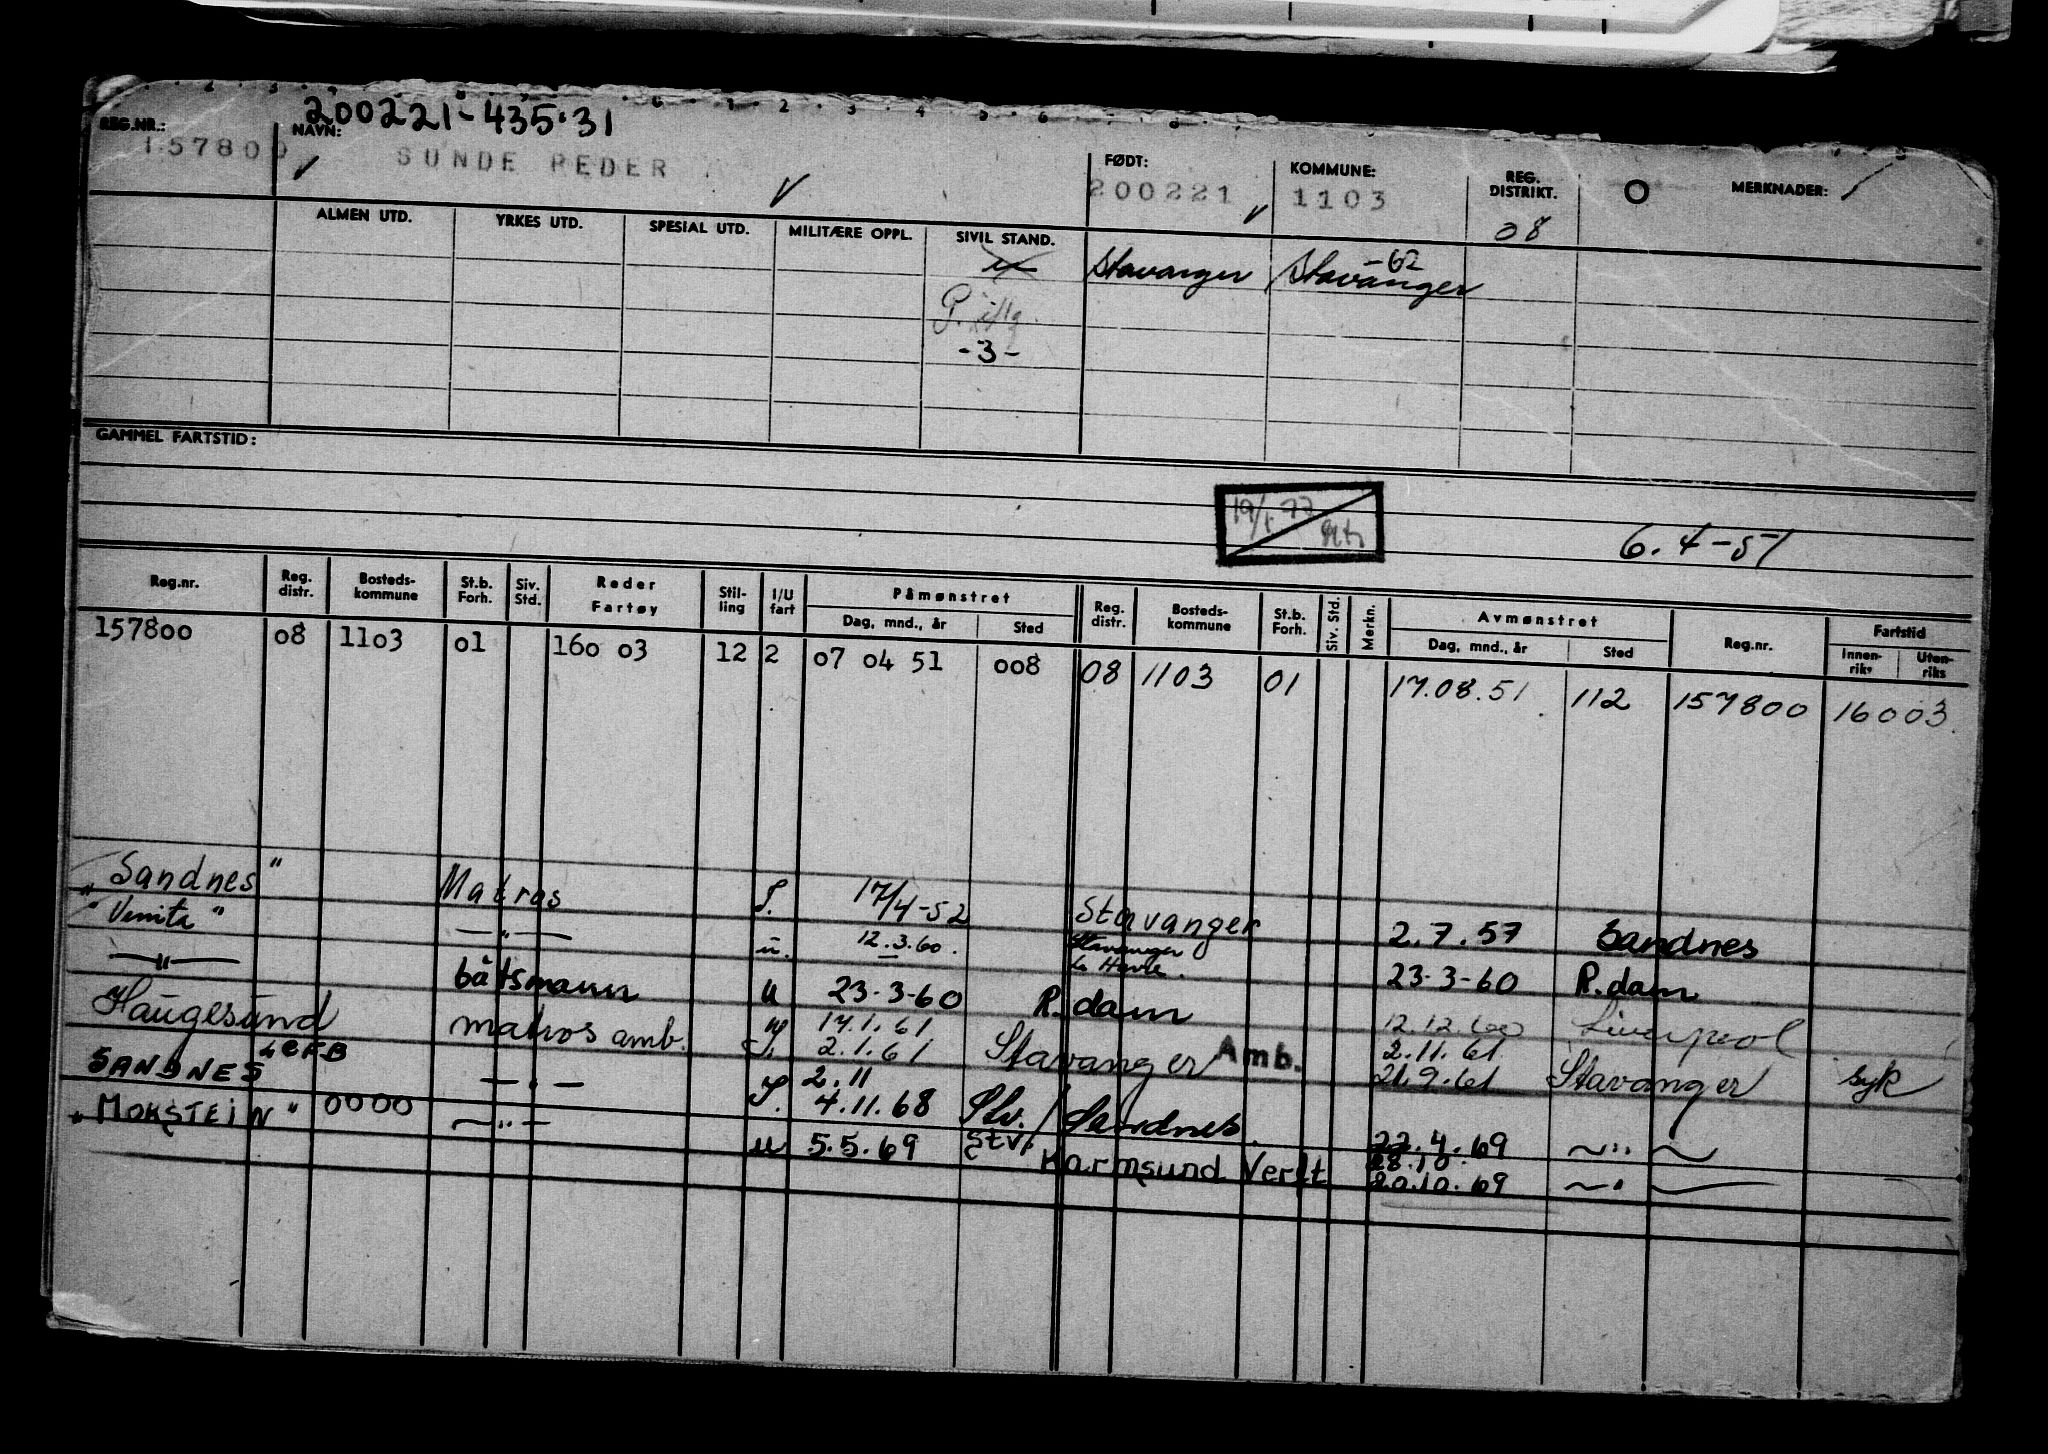 200221-435.31
REG.NR.: NAVN: FØDT: KOMMUNE: REG. DISTRIKT. O MERKNADER:
157800 SUNDE PEDER 200221 1103 08
ALMEN UTD. YRKES UTD. SPESIAL UTD. MILITÆRE OPPL. SIVIL STAND.
Stavanger Stavanger -62
-3-
GAMMEL FARTSTID:
19/1 77
6.4-57
Reg.nr. Reg. distr. Bosteds-kommune St.b. Forh. Siv. Std. Reder Fartøy Stil-ling I/U fart Påmønstret Dag, mnd., år Sted Reg. distr. Bosteds-kommune St.b. Forh. Siv. Std. Merkn. Avmønstret Dag, mnd., år Sted Reg.nr. Fartstid Innen-riks Uten-riks
157800 08 1103 01 160 03 12 2 07 04 51 008 08 1103 01 17.08.51 112 157800 16003
"Sandnes" Matros 17/4-52 Stavanger 2.7.57 Sandnes
"Venita" —"— u. 12.3.60. Stavanger Le Havre. 23-3-60 R.dam
—"— båtsmann u 23-3-60 R.dam 12.12.60 Liverpool
Haugesund matros amb. 17.1.61 2.1.61 Stavanger Amb. 2.11.61 21.9.61 Stavanger syk
SANDNES LEFB —"— 2.11 4.11.68 Stv./Sandnes. 22.4.69 —"—
"MOKSTEIN" 0000 —"— u 5.5.69 Stv. Karmsund Verft 28.10. 20.10.69 —"—